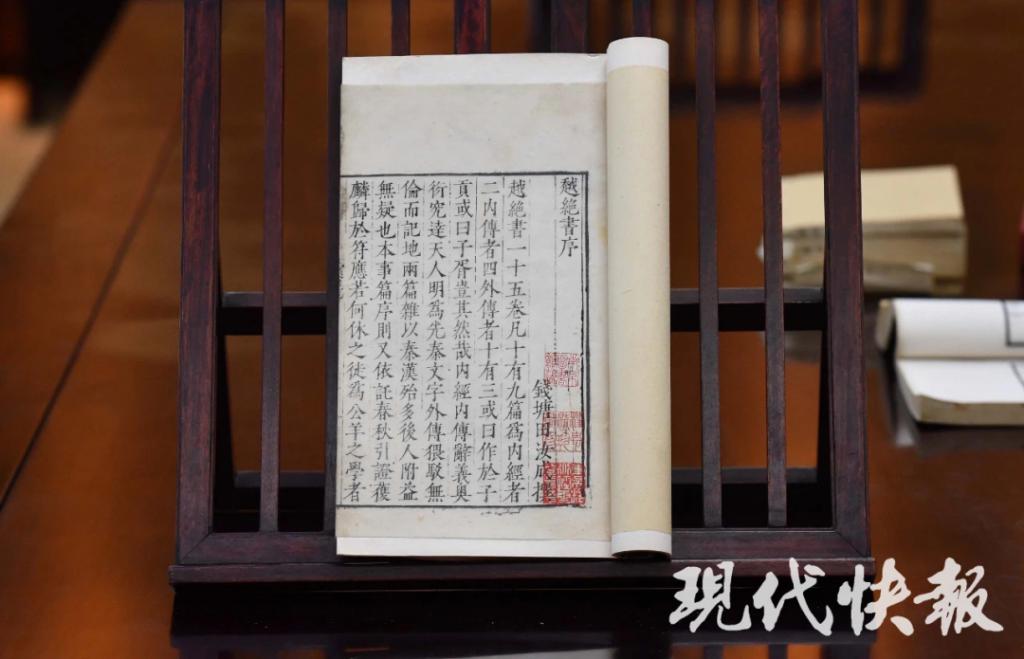 越絕書序
錢塘田汝成撰
越絕書一十五卷凡十有九篇為內經者
二內傳者四外傳者十有三或曰作於子
貢或曰子胥豈其然哉內經內傳辭義奧
衍究達天人明為先秦文字外傳猥駁無
倫而記地兩篇雜以秦漢殆多後人附益
無疑也本事篇序則又依託春秋引證獲
麟歸於符應若何休之徒為公羊之學者
現代快報